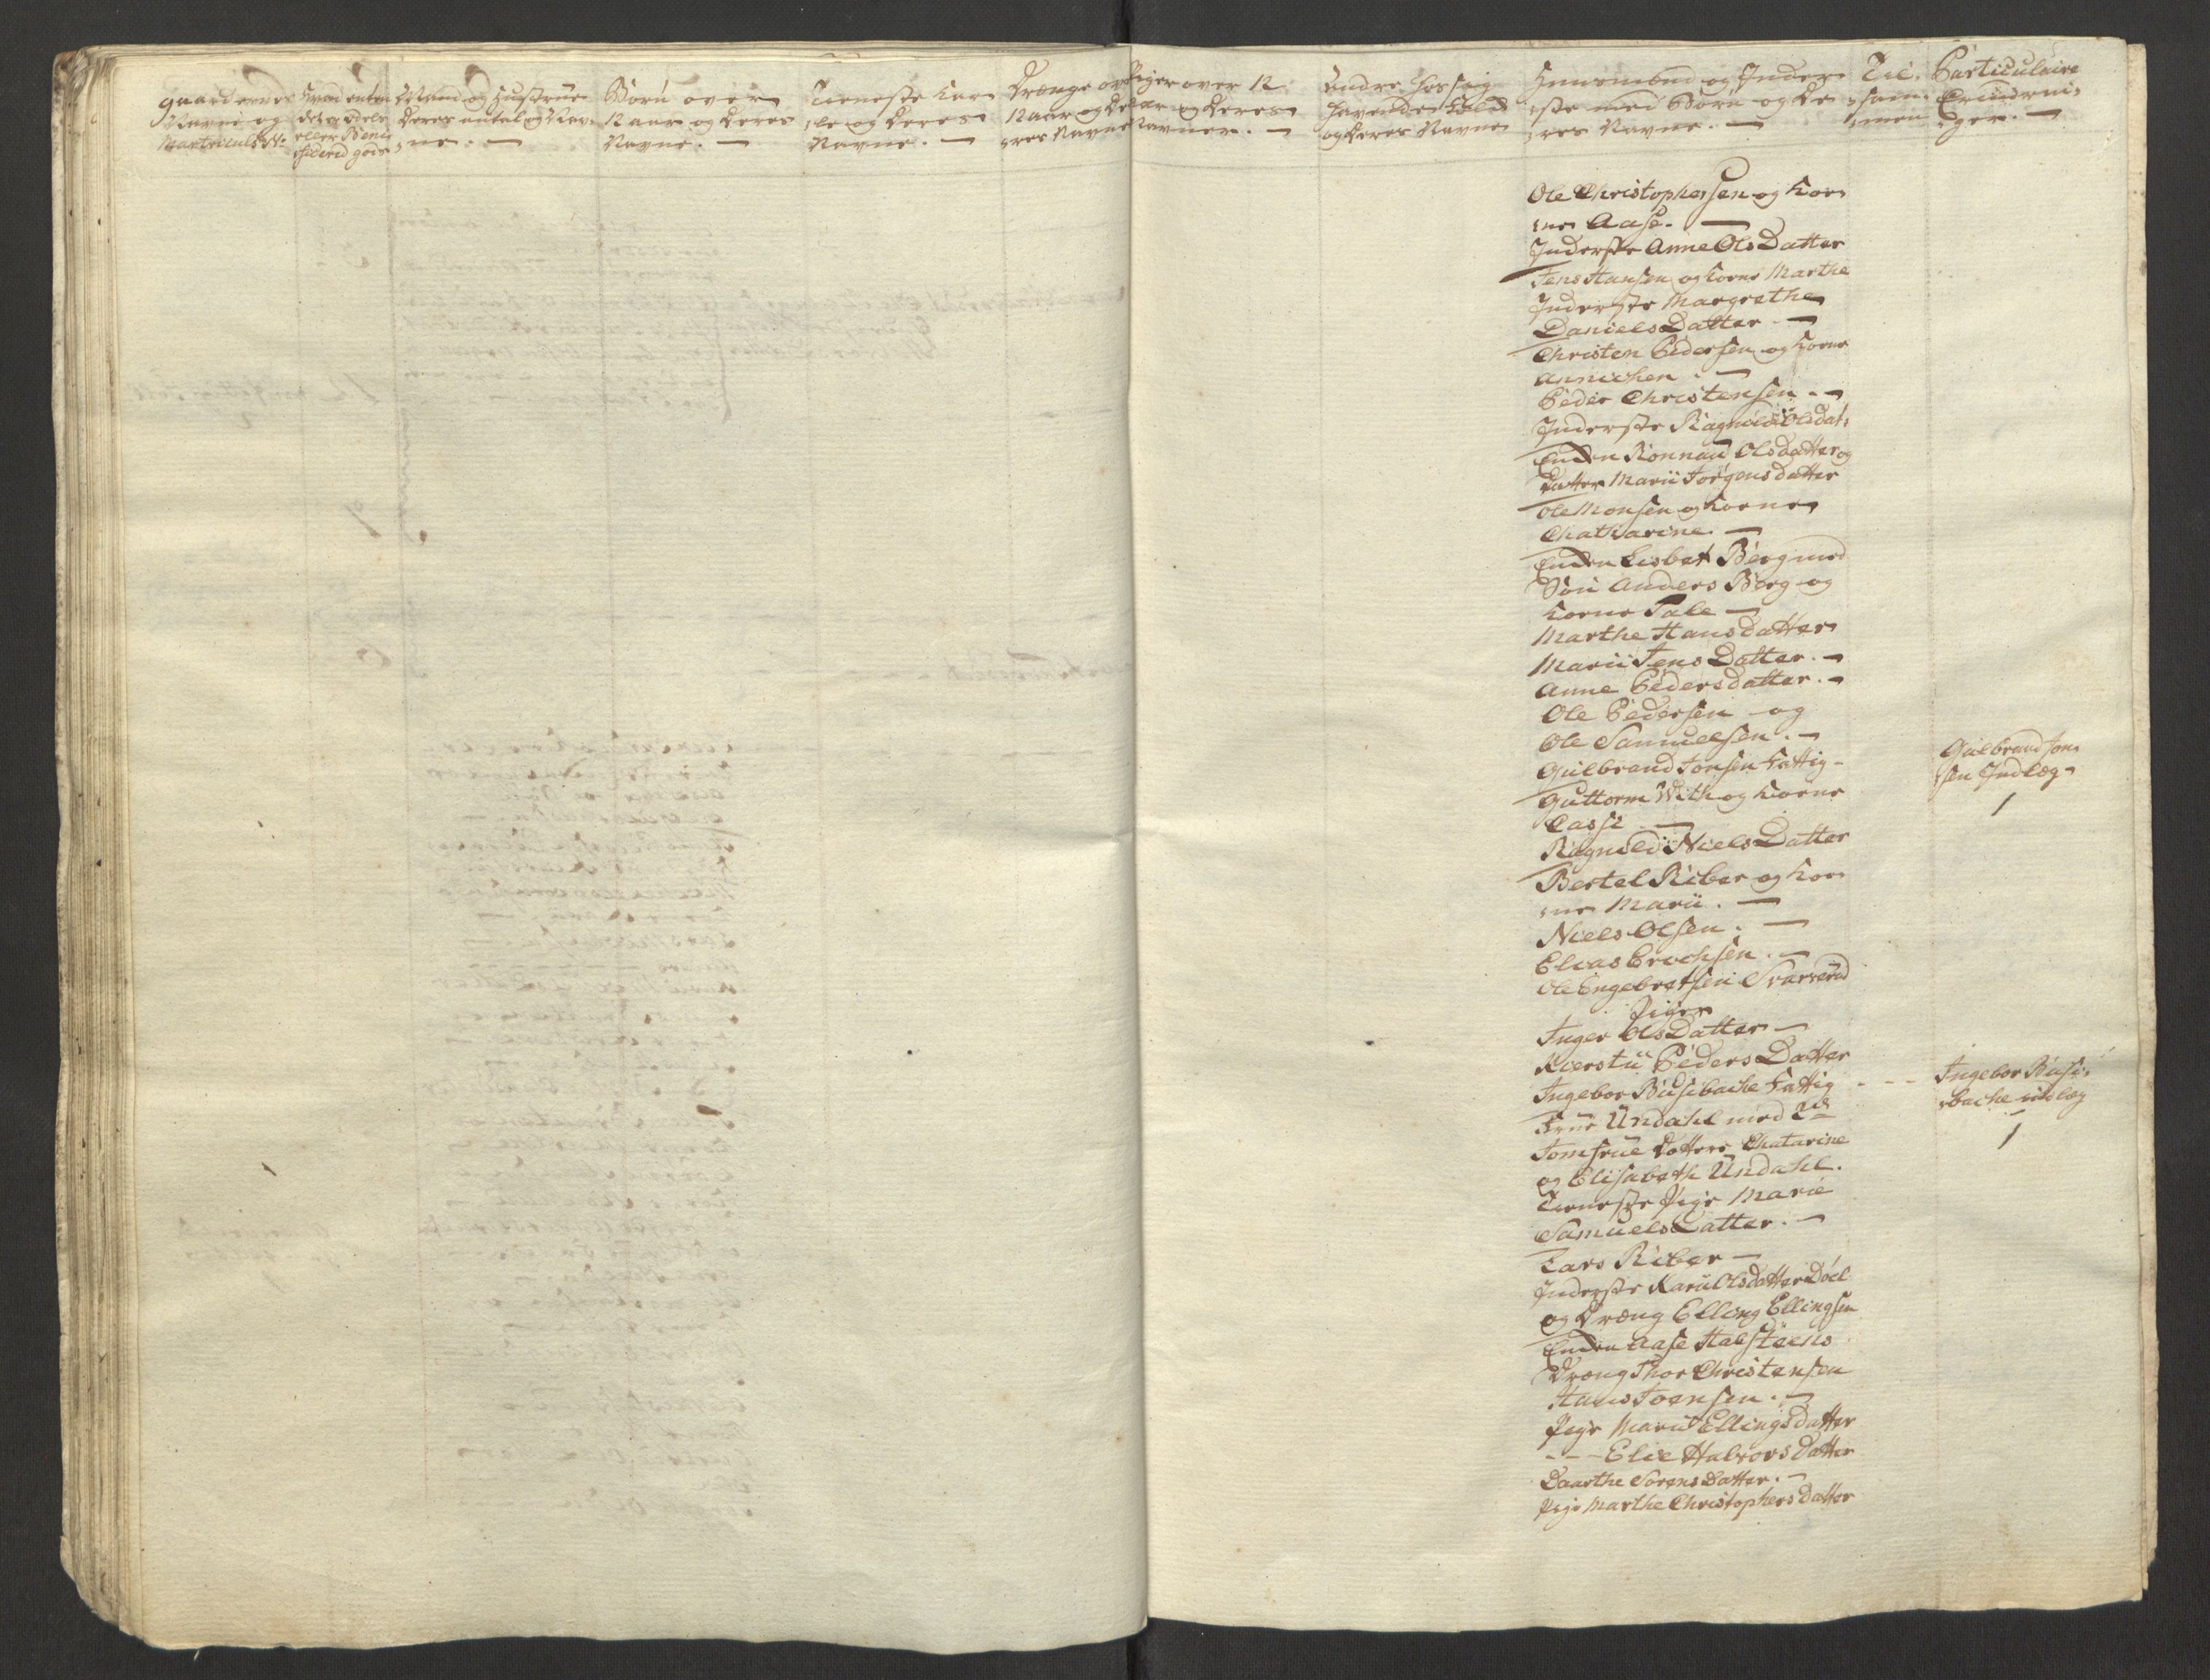 gaardernes
Navne og
Matriculs No.
Hvad enten
det er odels
eller Bene
ficered gods
Mand og Hustrue
Deres antal og Nav,
,ne. —
Børn over
12 aar og Deres
Navne. —
Tieneste Kar
,le og Deres
Navne. —
Drænge over
12 aar og De
,res Navne
Piger over 12
aar og Deres
Navner. —
Andre hos sig
havende Folk
og Deres Navne
Huusmænd og Inder
,ste med Børn og De
,res Navne. —
Til,
,sam,
,men
Particulaire
Eriindrin,
,ger. —
Ole Christophersen og Kon
,ne Aase. —
Inderste Anne OlsDatter
Jens Hansen og Kone Marthe
Inderste Margrethe
DanielsDatter —
Christen Pedersen og Kone
Annichen. —
Peder Christensen. —
Inderste Ragnild Olsdat,
Enken Ronnau Olsdatter og
Datter Marii Jörgensdatter
Ole Monsen og Kone
Chatharine —
Enken Lisbet Berg med
Søn Anders Berg og
Kone Tale —
Marthe Hansdatter
Marii JensDatter. —
Anne Pedersdatter. —
Ole Pedersen og
Ole Samuelsen. —
Gulbrand Jonsen Fattig —
Guttorm With og Kone
Casse —
Ragnild NielsDatter
Bertel Riber og Kon
,ne Marii. —
Niels Olsen. —
Elias Erichsen. —
Ole Engebretsen Svarverud
Piger
Inger OlsDatter —
Kierstii PedersDatter
Ingebor Busebache Fattig - - -
Frue Undahl med 2de
Jomfrue Døttere Chatarine
og Elisabeth Undahl.
Tieneste Pige Marie
SamuelsDatter. —
Lars Riber —
Inderste Karii Olsdatter Døel
og Dræng Elling Ellingsen
Enken Aase Halsteens
Dræng Thor Christensen
Hans Joensen. —
Pige Marii Ellingsdatter
- - - Elie Halvorsdatter
Daarthe SørensDatter. —
Pige Marthe ChristophersDatter
Gulbrand Jon,
,sen Indlæg
1
Ingebor Buse,
,bache indlæg
1